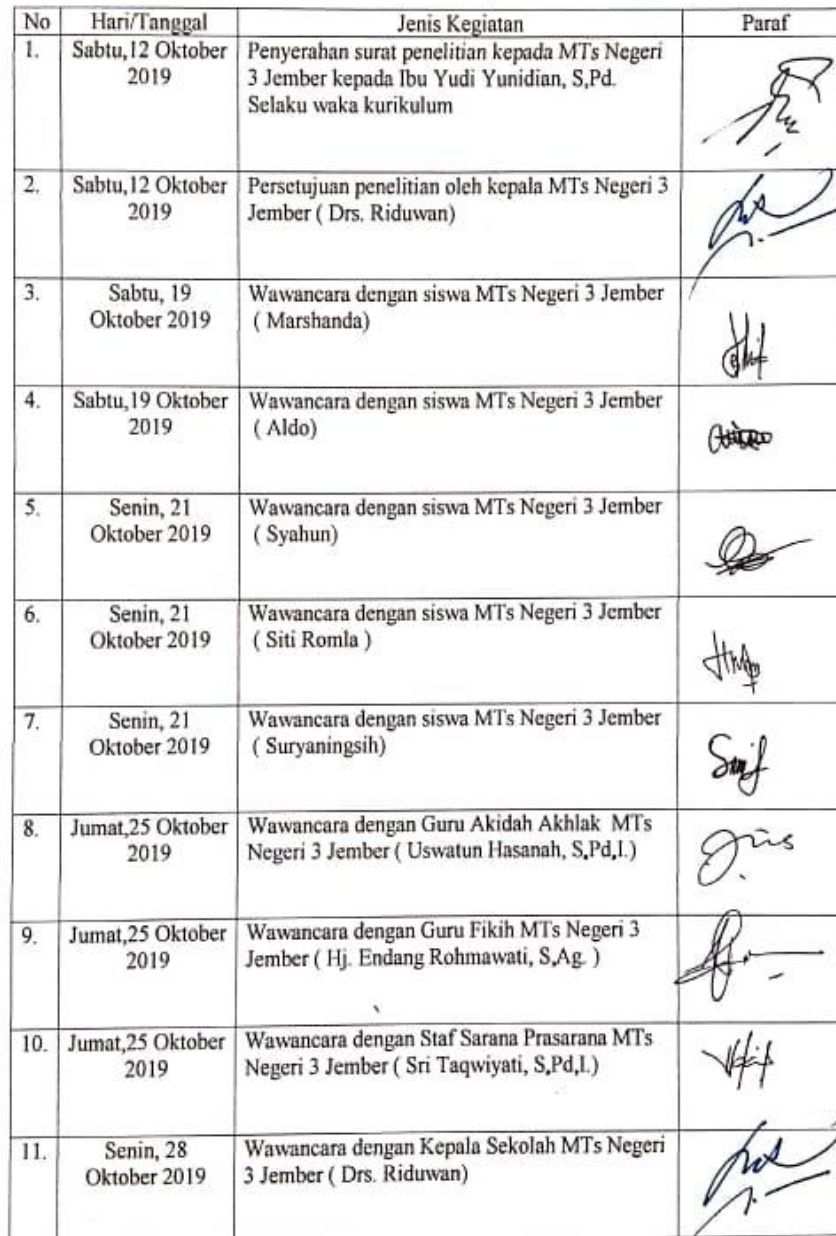 No Hari/Tanggal Jenis Kegiatan Paraf
1. Sabtu,12 Oktober Penyerahan surat penelitian kepada MTs Negeri
2019 3 Jember kepada Ibu Yudi Yunidian, S,Pd.
Selaku waka kurikulum
2. Sabtu,12 Oktober Persetujuan penelitian oleh kepala MTs Negeri 3
2019 Jember ( Drs. Riduwan)
3. Sabtu, 19 Wawancara dengan siswa MTs Negeri 3 Jember
Oktober 2019 ( Marshanda)
4. Sabtu,19 Oktober Wawancara dengan siswa MTs Negeri 3 Jember
2019 ( Aldo)
5. Senin, 21 Wawancara dengan siswa MTs Negeri 3 Jember
Oktober 2019 ( Syahun)
6. Senin, 21 Wawancara dengan siswa MTs Negeri 3 Jember
Oktober 2019 ( Siti Romla )
7. Senin, 21 Wawancara dengan siswa MTs Negeri 3 Jember
Oktober 2019 ( Suryaningsih)
8. Jumat,25 Oktober Wawancara dengan Guru Akidah Akhlak MTs
2019 Negeri 3 Jember ( Uswatun Hasanah, S,Pd,I.)
9. Jumat,25 Oktober Wawancara dengan Guru Fikih MTs Negeri 3
2019 Jember ( Hj. Endang Rohmawati, S,Ag. )
10. Jumat,25 Oktober Wawancara dengan Staf Sarana Prasarana MTs
2019 Negeri 3 Jember ( Sri Taqwiyati, S,Pd,I.)
11. Senin, 28 Wawancara dengan Kepala Sekolah MTs Negeri
Oktober 2019 3 Jember ( Drs. Riduwan)